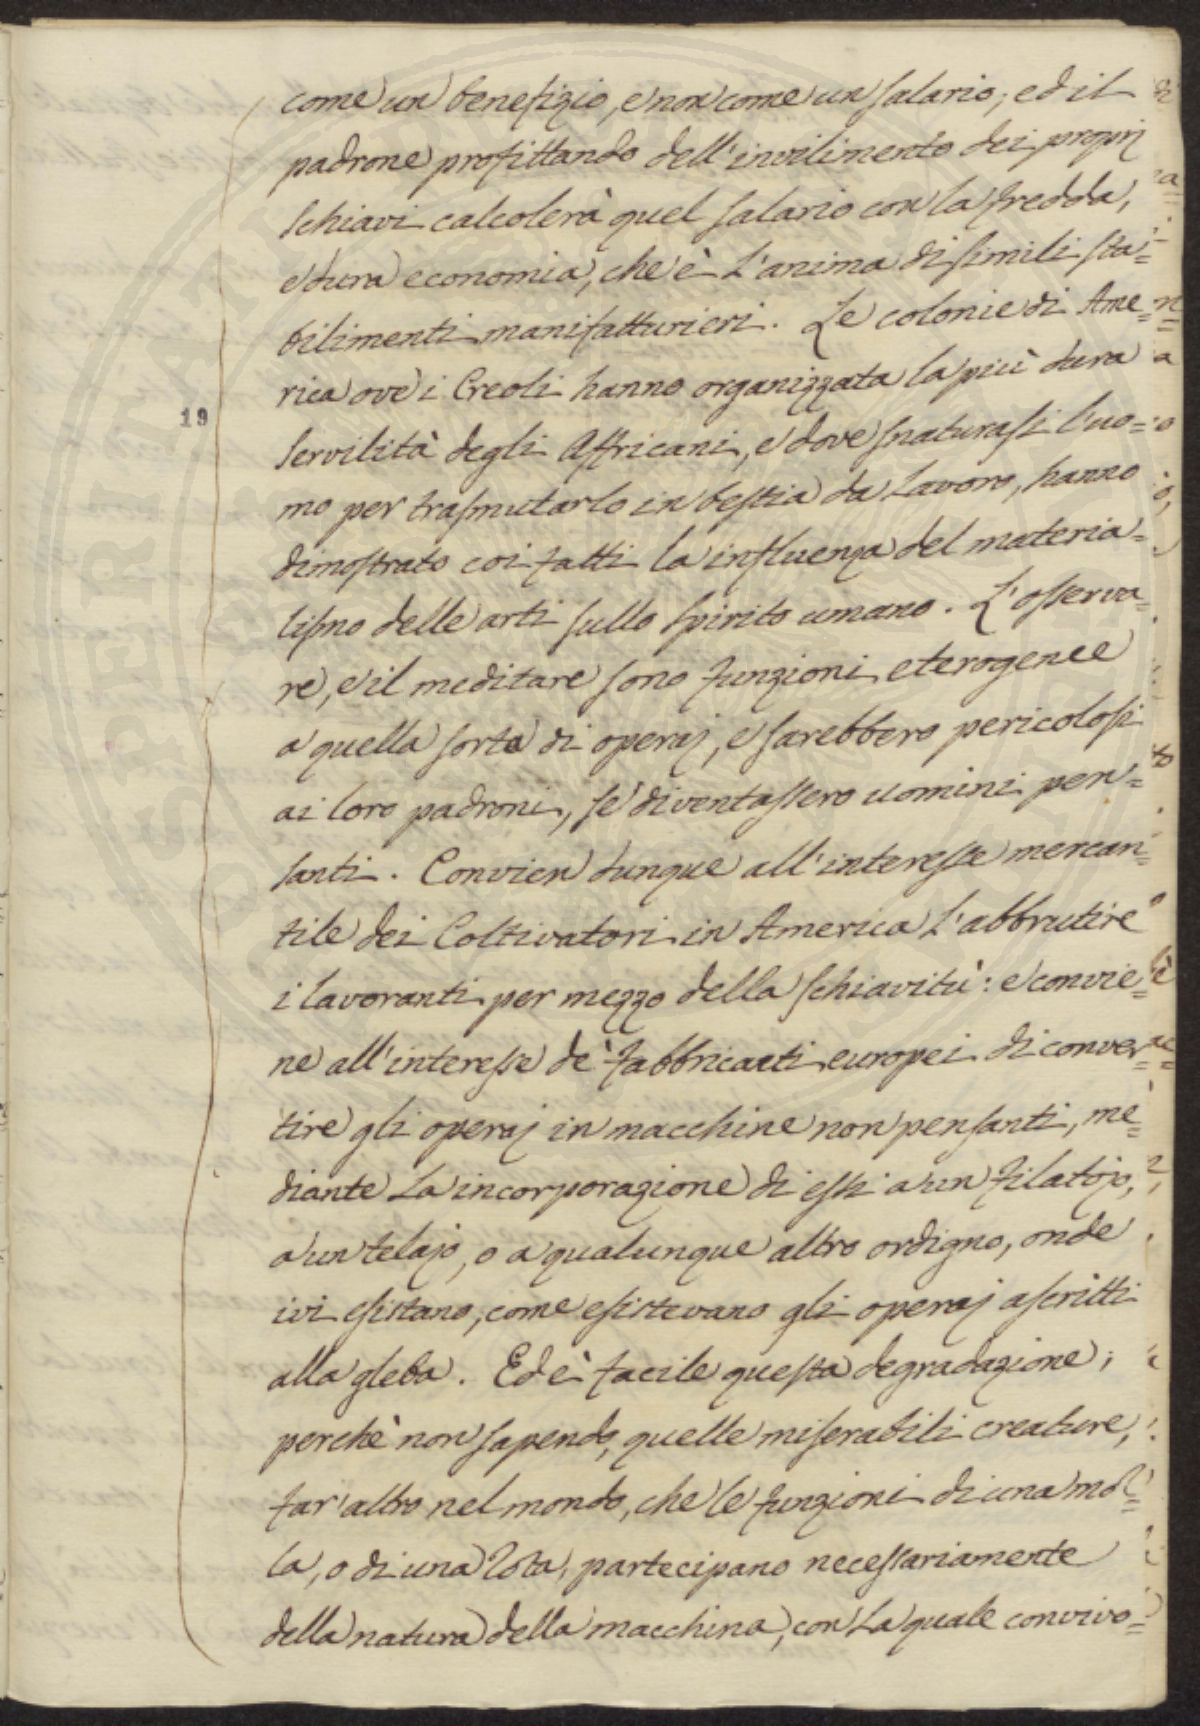 come un benefizio, e non come un salario; ed il
padrone profittando dell'invilimento dei proprj
schiavi calcolerà quel salario con la fredda,
e dura economia, che è l'anima di simili sta=
bilimenti manifatturieri. Le colonie di Ame=
rica ove i Creoli hanno organizzata la più dura
19
servilità degli Affricani, e dove snaturasi l'uo=
mo per trasmutarlo in bestia da lavoro, hanno
dimostrato coi fatti la influenza del materia=
lismo delle arti sullo spirito umano. L'osserva=
re, e il meditare sono funzioni eterogenee
a quella sorta di operaj, e sarebbero pericolosi
ai loro padroni, se diventassero uomini pen=
santi. Convien dunque all'interesse mercan=
tile dei Coltivatori in America l'abbrutire
i lavoranti per mezzo della schiavitù: e convie=
ne all'interesse de' fabbricanti europei di conver=
tire gli operaj in macchine non pensanti, me=
diante la incorporazione di essi a un filatojo,
a un telajo, o a qualunque altro ordigno, onde
ivi esistano, come esistevano gli operaj ascritti
alla gleba. Ed è facile questa degradazione;
perchè non sapendo, quelle miserabili creature,
far' altro nel mondo, che le funzioni di una mol=
la, o di una rota, partecipano necessariamente
della natura della macchina, con la quale convivo=